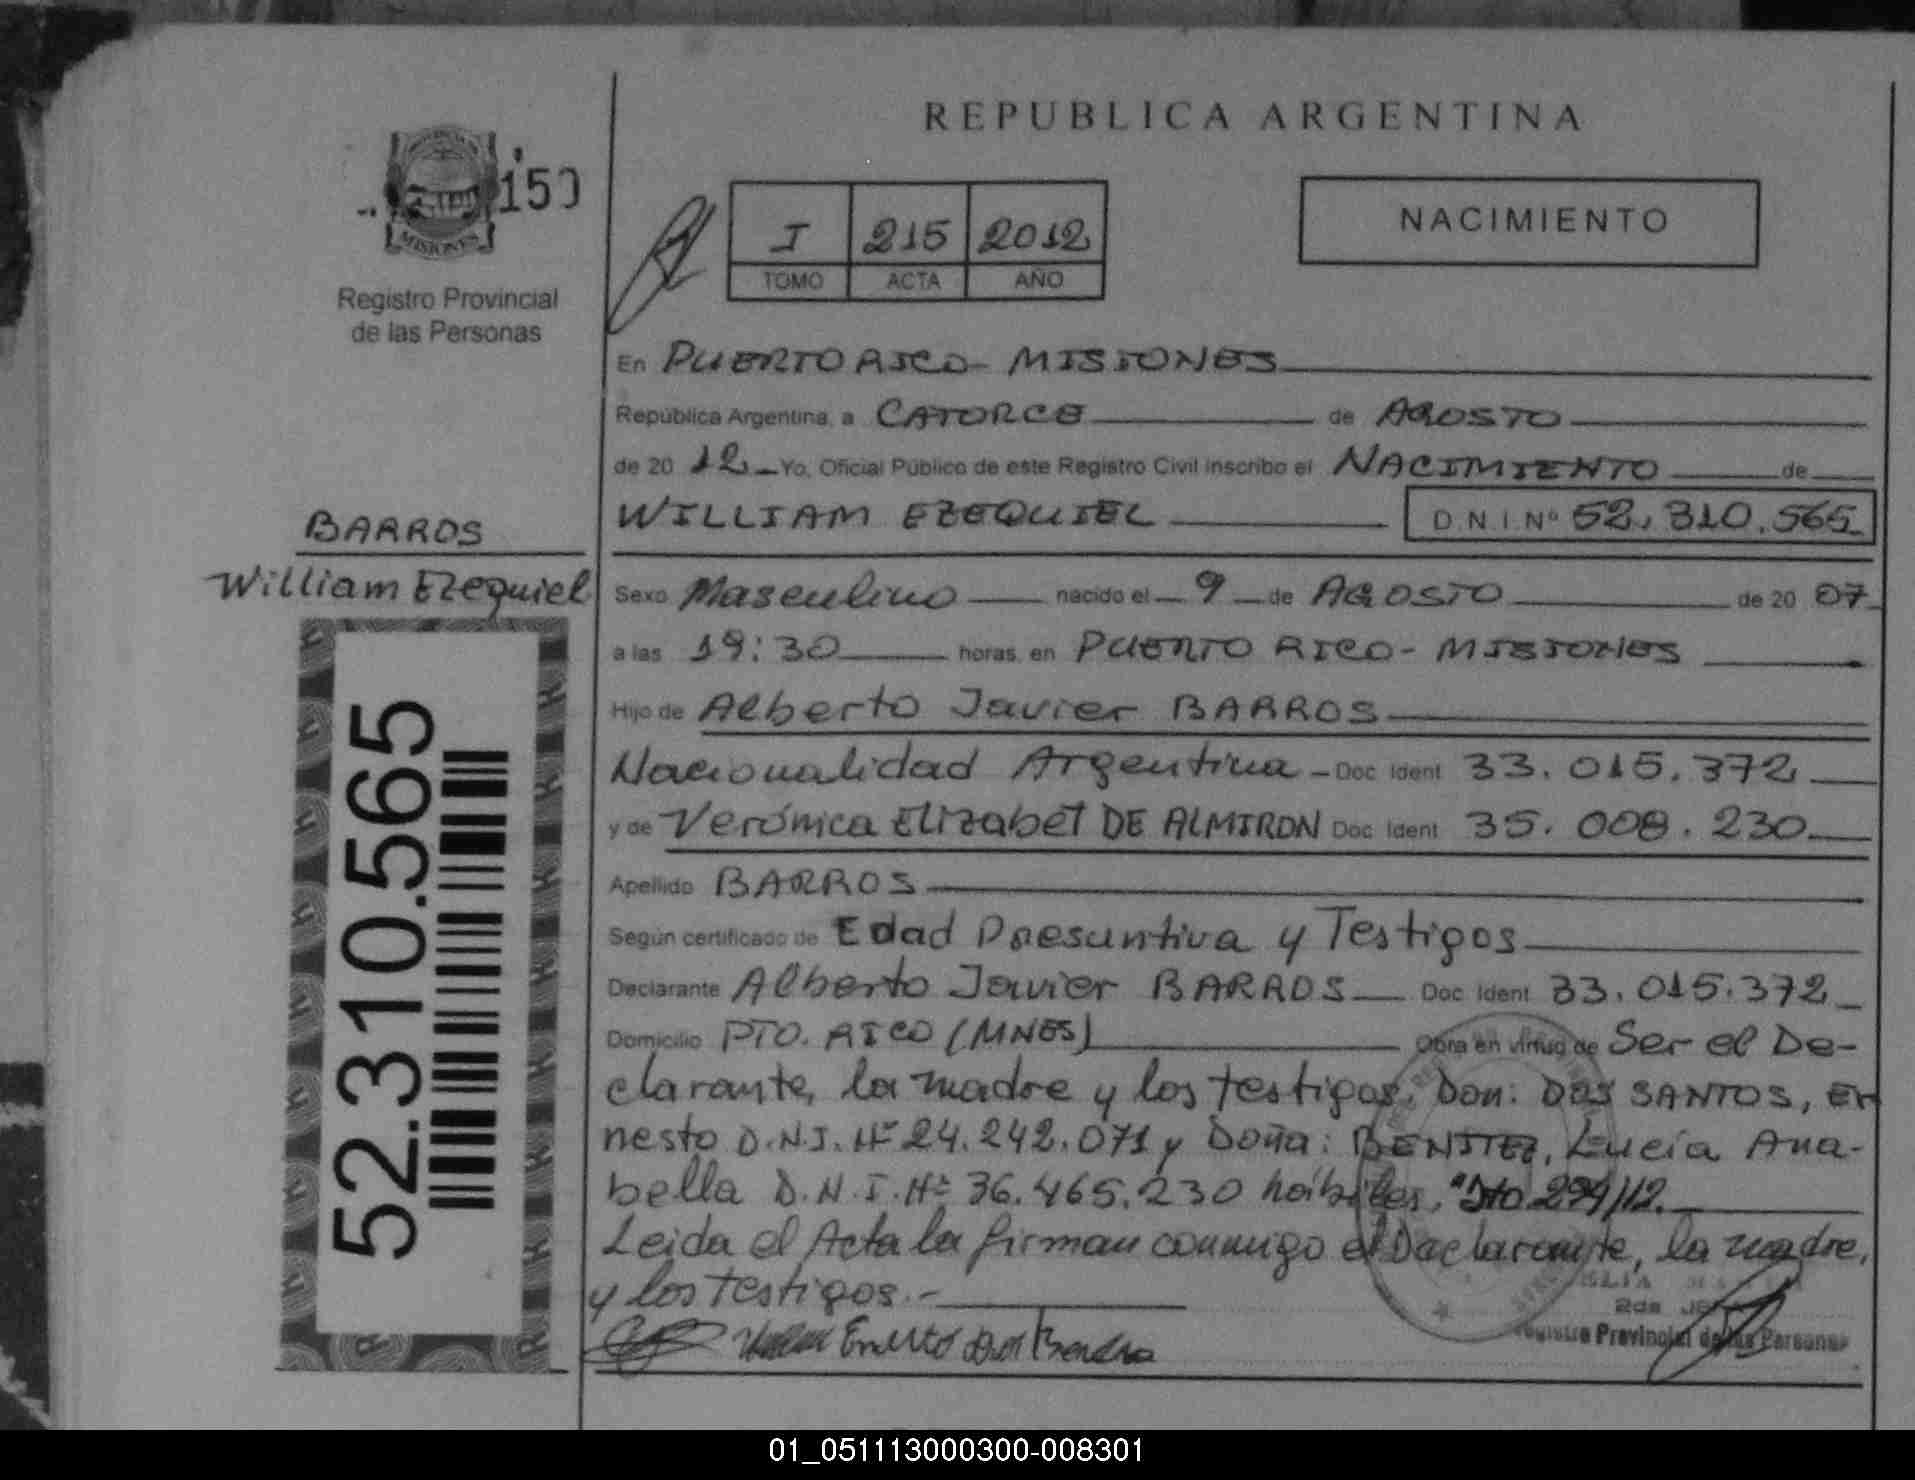 REPUBLICA ARGENTINA
150
MISIONES
Registro Provincial
de las Personas
I 215 2012
TOMO ACTA AÑO
NACIMIENTO
En PUERTO RICO - MISIONES
República Argentina, a CATORCE de AGOSTO
de 20 12 Yo, Oficial Público de este Registro Civil inscribo el NACIMIENTO de
WILLIAM EZEQUIEL D.N.I. Nº 52.310.565
BARROS
William Ezequiel
52.310.565
Sexo Masculino nacido el 9 de AGOSTO de 20 07
a las 19:30 horas, en PUERTO RICO - MISIONES
Hijo de Alberto Javier BARROS
Nacionalidad Argentina - Doc Ident 33.015.372
y de Verónica Elizabet DE ALMIRON Doc Ident 35.008.230
Apellido BARROS
Según certificado de Edad Presuntiva y Testigos
Declarante Alberto Javier BARROS Doc Ident 33.015.372
Domicilio PTO. RICO (MNES) Obra en virtud de Ser el De-
clarante, la madre y los testigos, Don: DOS SANTOS, Er
nesto D.N.I. Nº 24.242.071 y Doña: BENITEZ, Lucía Ana-
bella D.N.I. Nº 36.465.230 hábiles,
Leida el Acta la firman conmigo el Declarante, la madre,
y los testigos.-
2da
Registro Provincial de las Personas
01_051113000300-008301